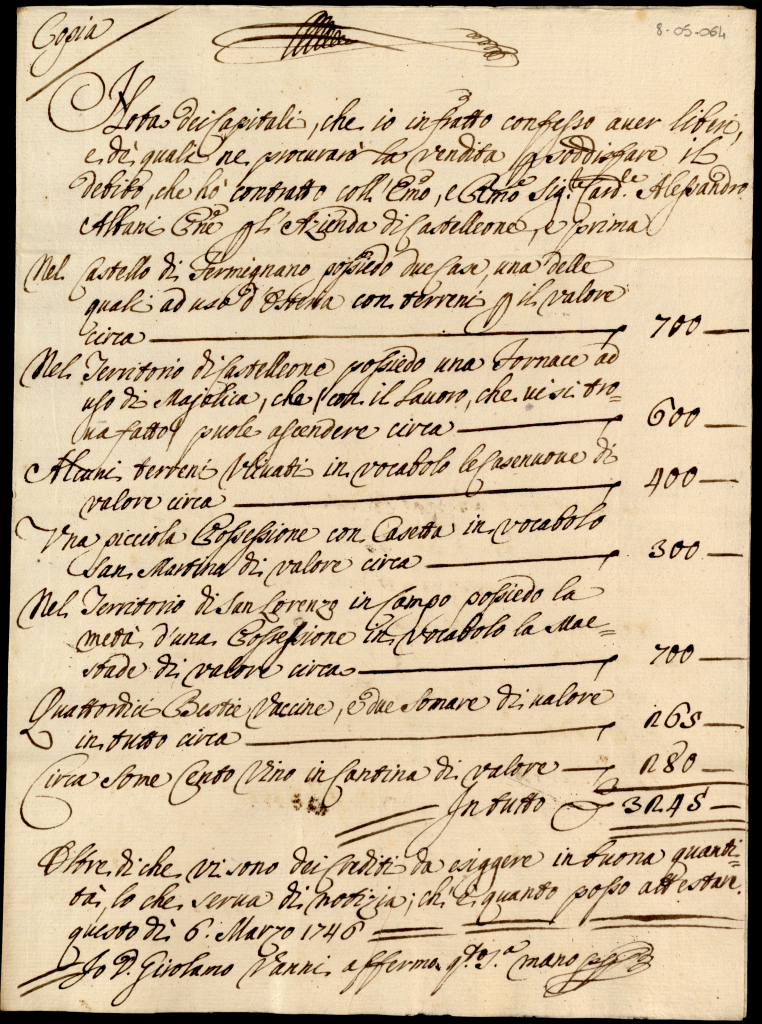 Copia
8-05-064
Nota dei Capitali, che io infratto confesso aver liberi,
e di quali ne procurarò la vendita p soddisfare il
debito, che hò contratto coll' Emo, e Rmo Sig.r Card.le Alessandro
Albani Pne p l'Azienda di Castelleone, e prima
Nel Castello di Fermignano possiedo due Case, una delle
quali ad uso d'Osteria con terreni p il valore
circa — 700 —
Nel Territorio di Castelleone possiedo una Fornace ad
uso di Majolica, che (con il Lavoro, che vi si tro=
va fatto) puole ascendere circa — 600 —
Alcuni terreni Ulivati in vocabolo le Casenuove di
valore circa — 400 —
Una picciola Possessione con Casetta in vocabolo
San Martino di valore circa — 300 —
Nel Territorio di San Lorenzo in Campo possiedo la
metà d'una Possessione in vocabolo la Mae=
stade di valore circa — 700 —
Quattordici Bestie Vaccine, e due Somare di valore
in tutto circa — 265 —
Circa Some Cento Vino in Cantina di valore — 280 —
In tutto 3245 —
Oltre di che vi sono dei Crediti da esiggere in buona quanti=
tà, lo che serva di notizia; ch'è quanto posso attestare.
questo dì 6. Marzo 1746
Io D. Girolamo Vanni affermo q.to s.a mano pp